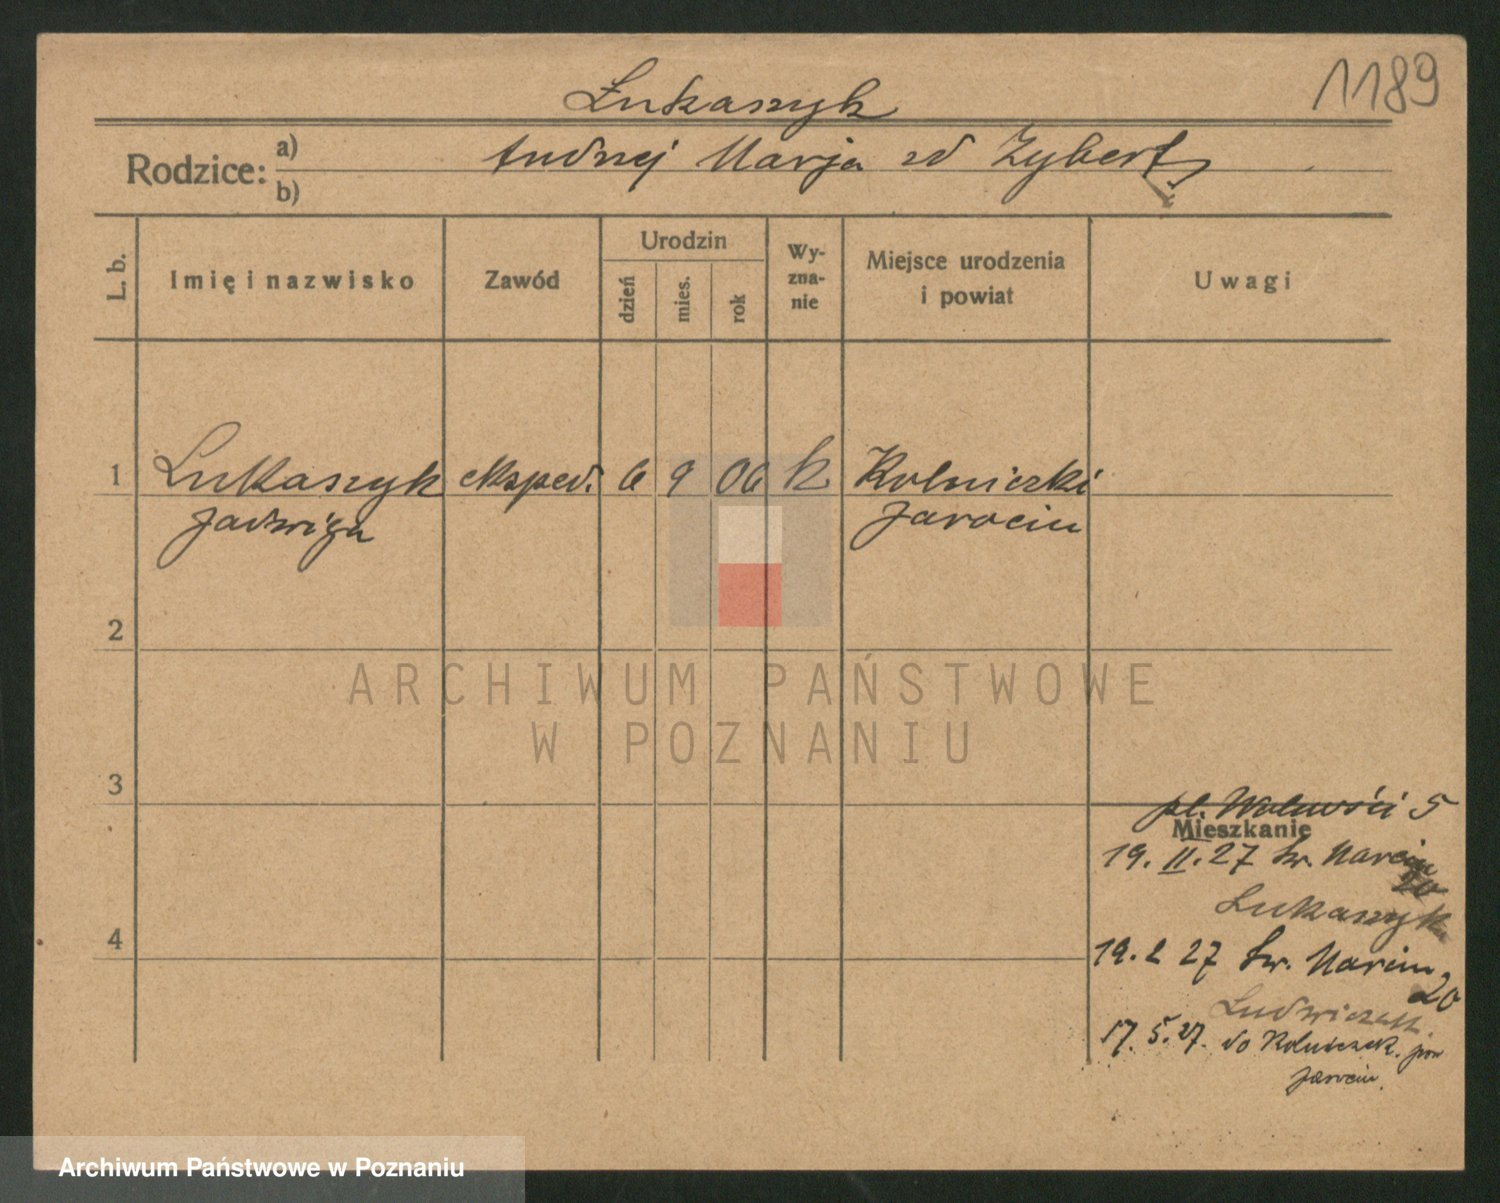 1189
Łukaszyk
Rodzice: a) Andrzej Marja zd Zybert
b)
L. b. Imię i nazwisko Zawód Urodzin dzień mies. rok Wyznanie Miejsce urodzenia i powiat Uwagi
1 Łukaszyk eksped. 6 9 06 k Kolniczki
Jadwiga Jarocin
2
3
pl. Wolności 5
Mieszkanie
19. II. 27 Św. Marcin
20
Łukaszyk
4
19. 2 27 Św. Marcin
20
Ludwiczak
17. 5. 27. do Kolniczek. pow
Jarocin.
ARCHIWUM PAŃSTWOWE
W POZNANIU
Archiwum Państwowe w Poznaniu